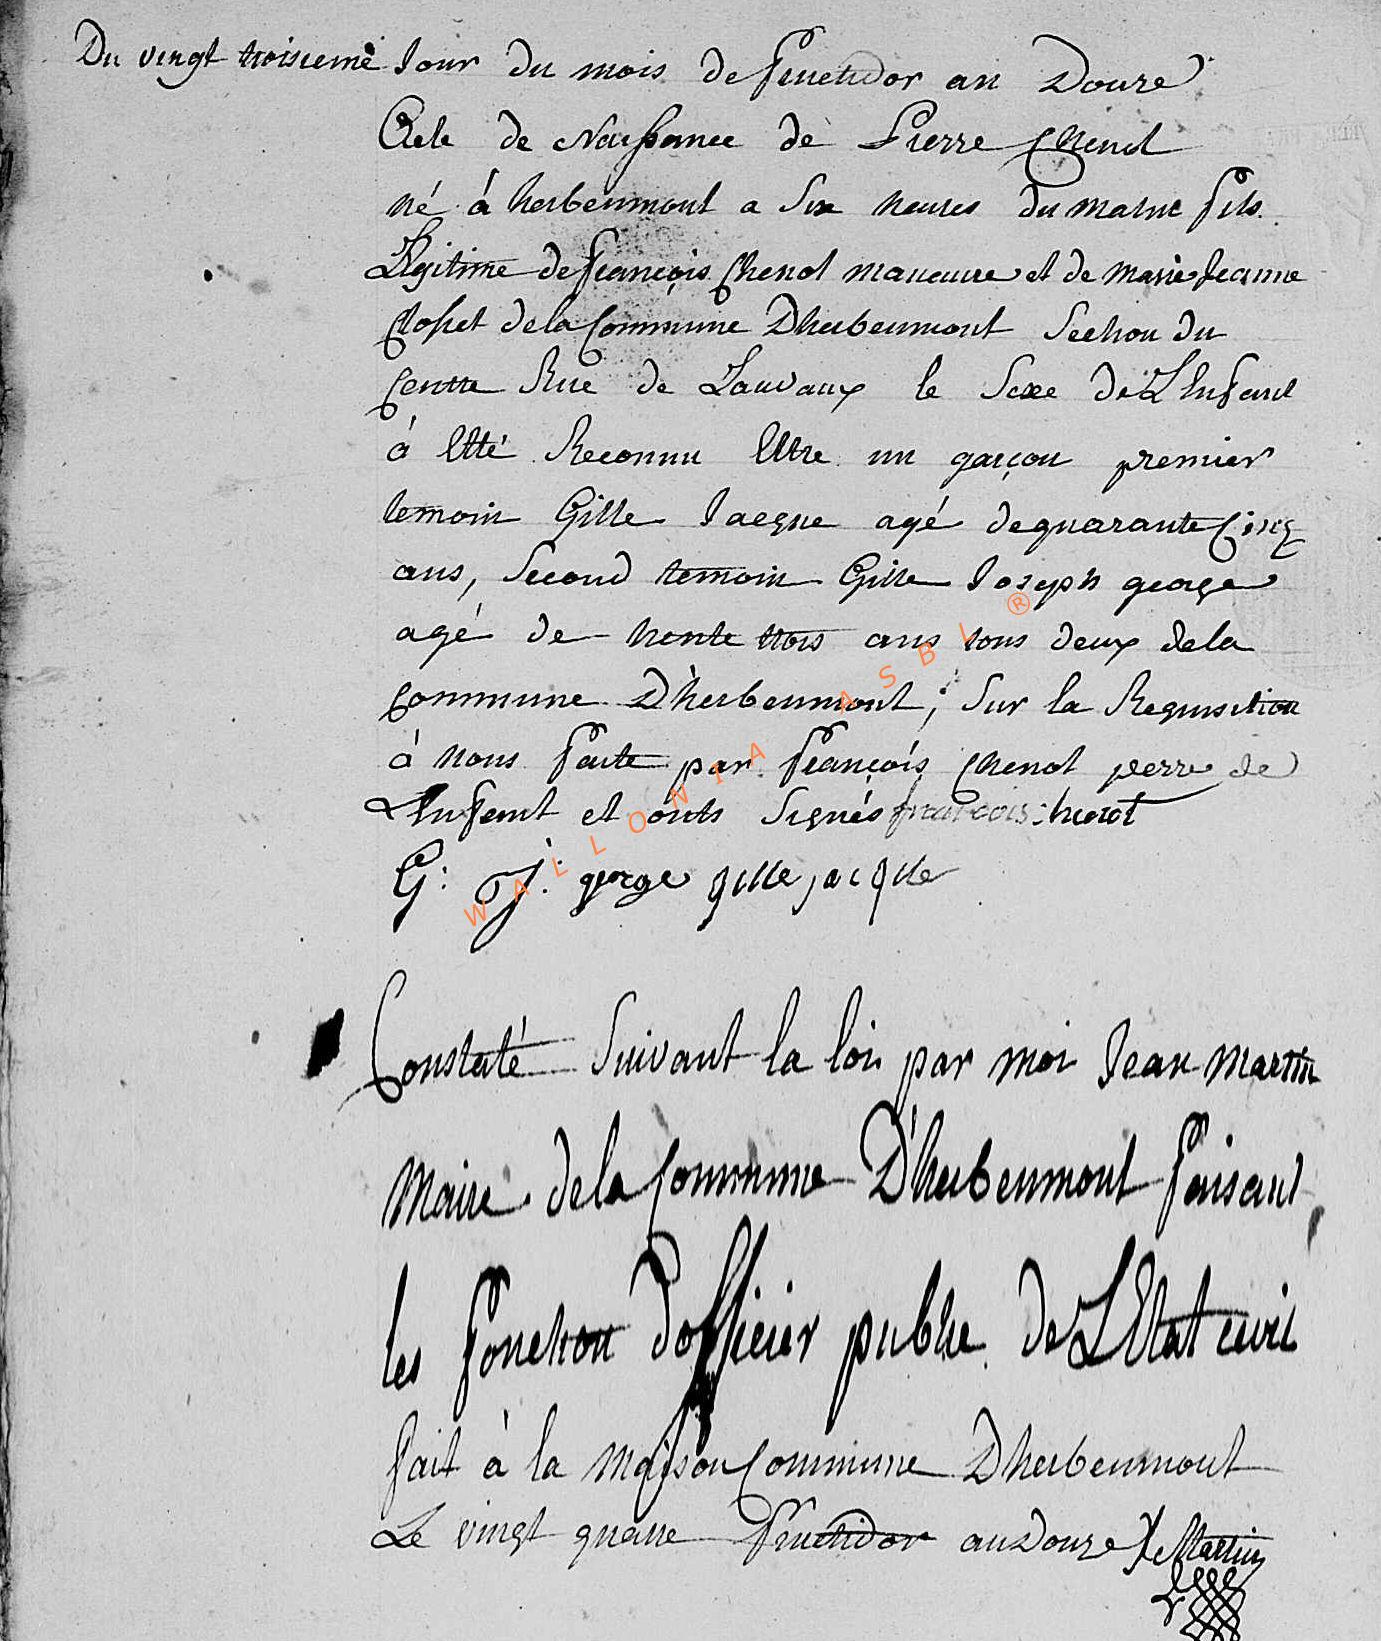 Du vingt troisieme Jour du mois de fructidor an Douze
Acte de Naissance de Pierre Chenot
né á herbeumont a Six heures du matin fils
Légitime de françois Chenot maneuvre et de marie Jeanne
de la Commune Dherbeumont Section du
Centre Rue de Lauvaux le Sexe de L'Enfant
à Etté Reconnu Ettre un garçon premier
temoin Gille Jacque agé de quarante Cinq
ans, Second temoin Gille Joseph george
agé de trente trois ans tous deux de la
Commune D'herbeumont; Sur la Requisition
à nous faite par françois Chenot perre de
L'Enfant et onts Signés francois : henot
G: J: george gille jacque
Constaté Suivant la loi par moi Jean Martin
Maire de la Commune D'herbeumont faisant
les fonction d'officier public de L'Etat civil
fait à la Maison Commune Dherbeumont
Le vingt quatre fructidor an Douze J Martin
WALLONIA ASBL ®